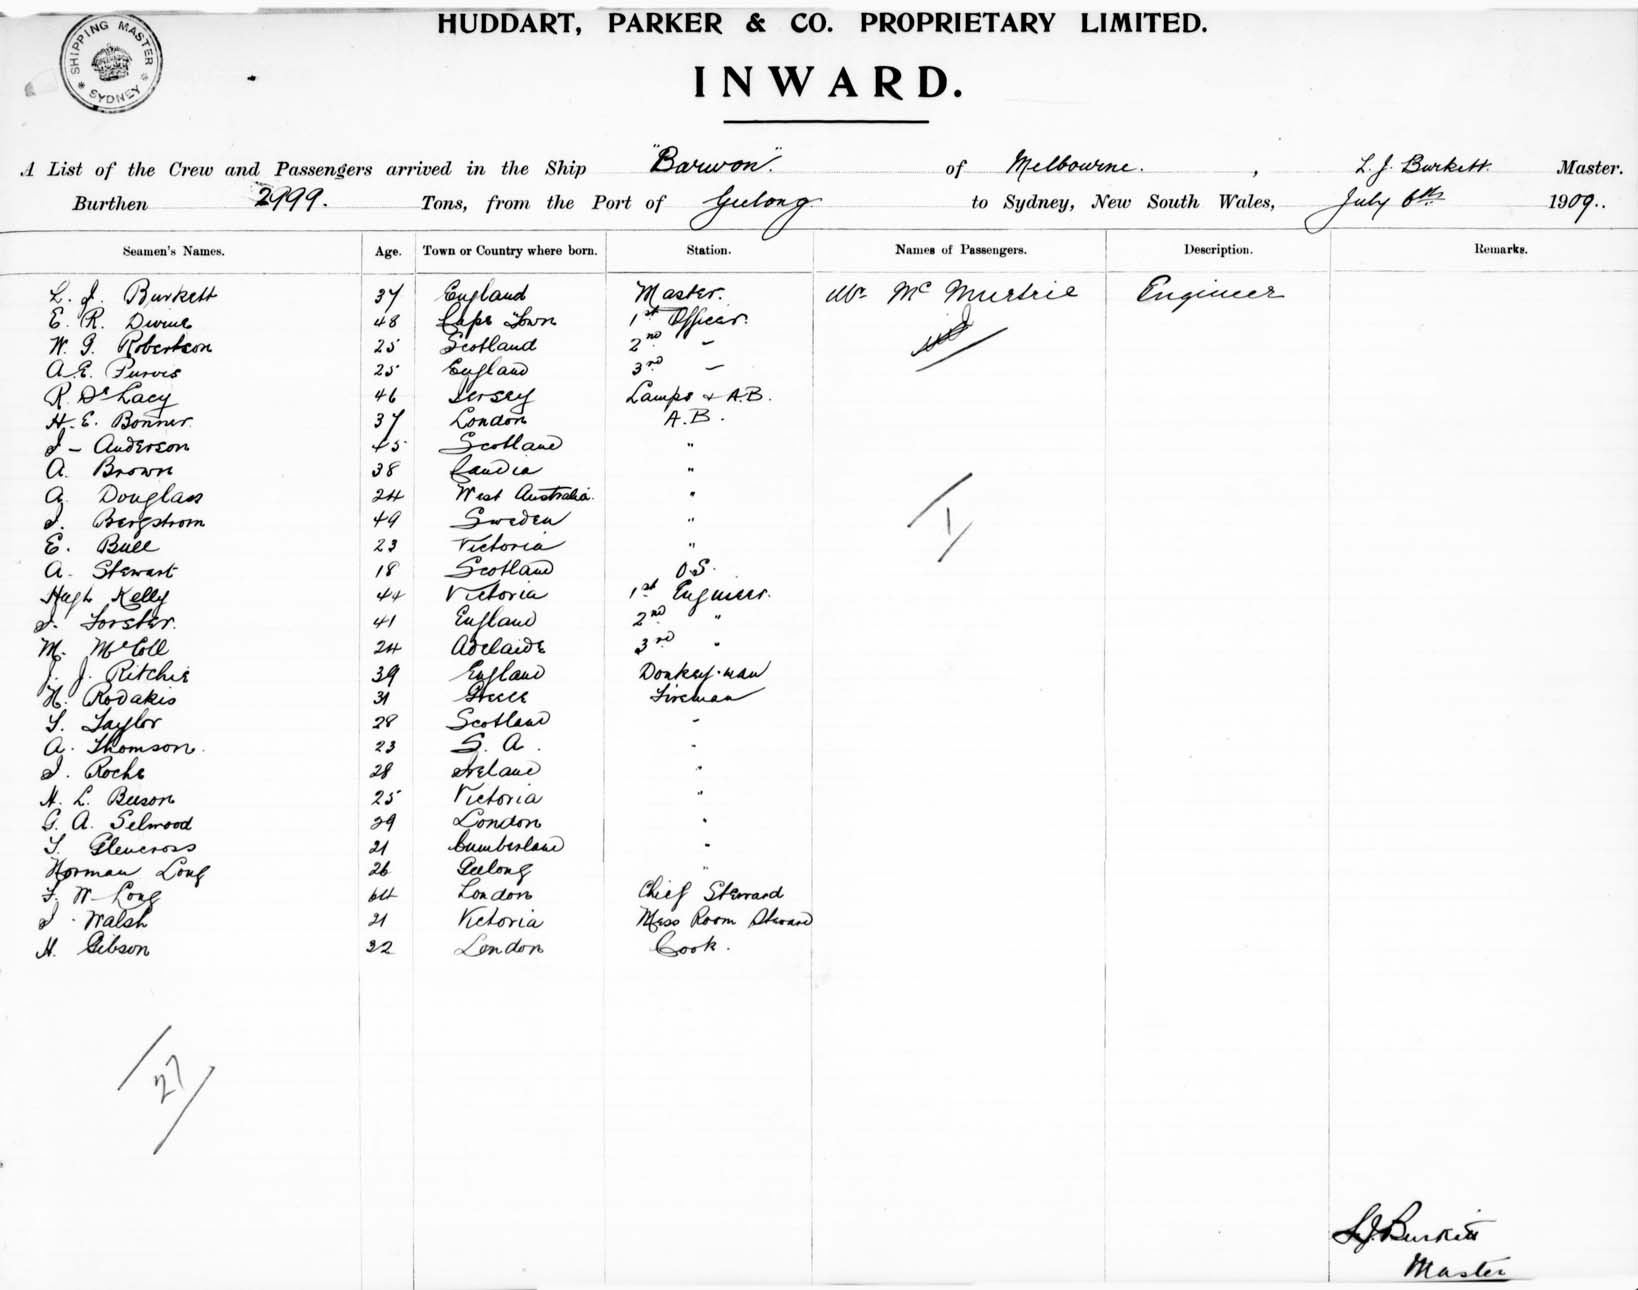 SHIPPING MASTER
* SYDNEY *
HUDDART, PARKER & CO. PROPRIETARY LIMITED.
INWARD.
A List of the Crew and Passengers arrived in the Ship "Barwon". of Melbourne. , L. J. Burkett. Master.
Burthen 2999. Tons, from the Port of Geelong to Sydney, New South Wales, July 6th 1909..
Seamen's Names. Age. Town or Country where born. Station. Names of Passengers. Description. Remarks.
L. J. Burkett 37 England Master. Mr. Mc Murtrie Engineer
E. R. Divine 48 Cape Town 1st Officer.
W. G. Robertson 25 Scotland 2nd -
A. E. Purves 25 England 3rd -
R. De Lacy 46 Jersey Lamps & A.B.
H. E. Bonner. 37 London A.B.
J - Anderson 45 Scotland "
A. Brown 38 Candia "
A. Douglas 24 West Australia. "
J. Bergstrom 49 Sweden "
1
E. Bull 23 Victoria "
A. Stewart 18 Scotland O.S.
Hugh Kelly 44 Victoria 1st Engineer.
J. Forster. 41 England 2nd "
M. McColl 24 Adelaide 3rd "
J. J. Ritchie 39 England Donkey-man
N. Rodakis 31 Greece Fireman
T. Taylor 28 Scotland "
A. Thomson. 23 S. A. "
J. Roche 28 Ireland "
H. L. Beeson 25 Victoria "
G. A. Selwood 29 London "
T. Glencross 21 Cumberland "
Norman Long 26 Geelong "
F. W. Long 64 London Chief Steward
J. Walsh 21 Victoria Mess Room Steward
H. Gibson 22 London Cook.
27
L.J. Burkett
Master